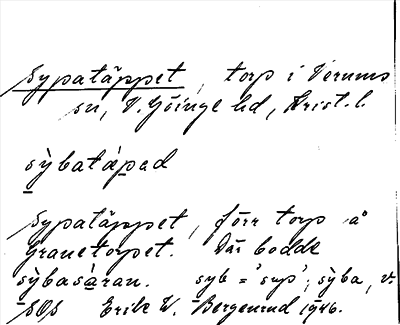 Sypatäppet, torp i Verums
sn, V. Göinge hd, Krist. l.
sỳbatápad
Sypatäppet, förr torp å
Granetorpet. Där bodde
sỳbasàran. syb = 'sup'; sỳba, v.
SOS Erik W. Bergenrud 1946.